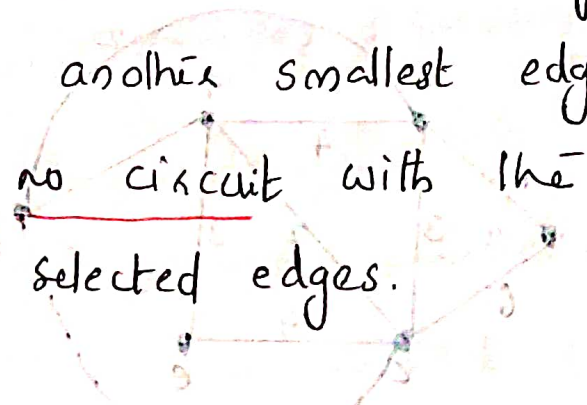 another smallest edg
no circuit with the
selected edges.